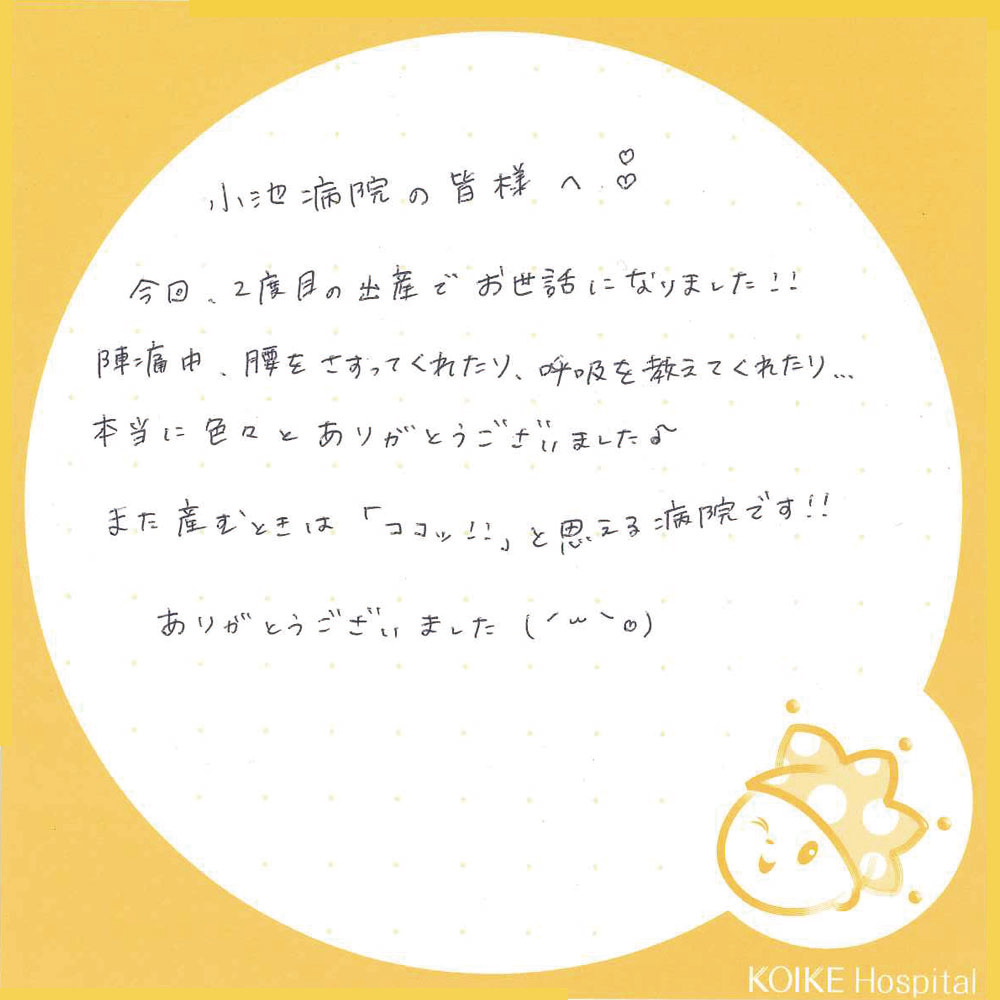 小池病院の皆様へ♡♡
今回、2度目の出産でお世話になりました!!
陣痛中、腰をさすってくれたり、呼吸を教えてくれたり…
本当に色々とありがとうございました♪
また産むときは「ココッ!!」と思える病院です!!
ありがとうございました(´ω`o)
KOIKE Hospital